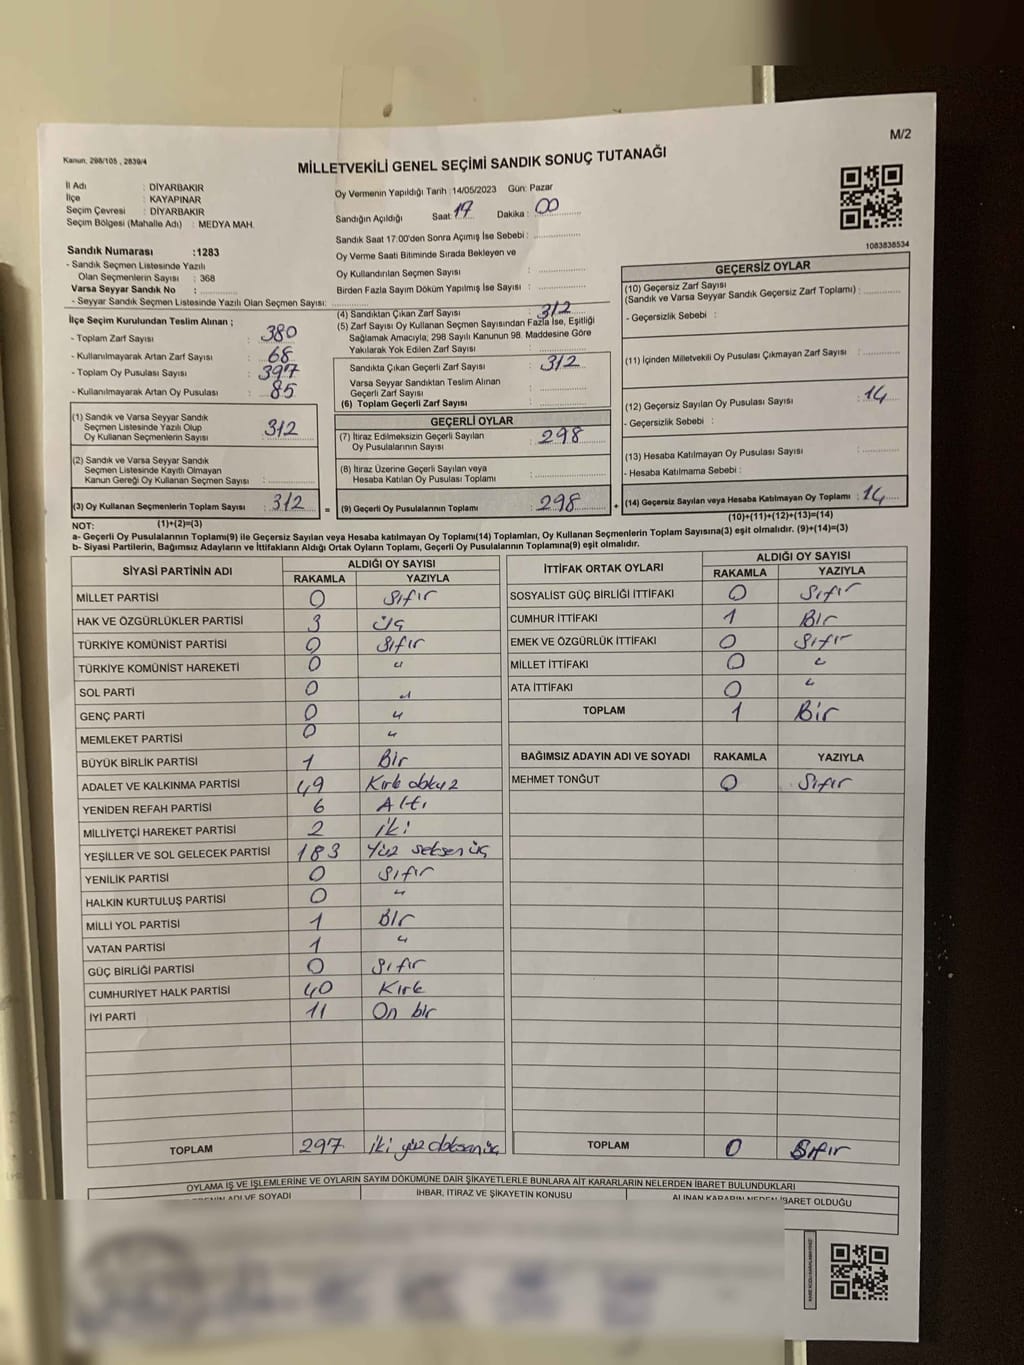 M/2
Kanun, 298/105 , 2839/4
MİLLETVEKİLİ GENEL SEÇİMİ SANDIK SONUÇ TUTANAĞI
İl Adı : DİYARBAKIR
İlçe : KAYAPINAR
Seçim Çevresi : DİYARBAKIR
Seçim Bölgesi (Mahalle Adı) : MEDYA MAH.
Oy Vermenin Yapıldığı Tarih :14/05/2023 Gün: Pazar
Sandığın Açıldığı Saat: 17 Dakika : 00
Sandık Saat 17:00'den Sonra Açımış İse Sebebi :
Oy Verme Saati Bitiminde Sırada Bekleyen ve
Oy Kullandırılan Seçmen Sayısı :
Birden Fazla Sayım Döküm Yapılmış İse Sayısı :
1083838534
Sandık Numarası :1283
- Sandık Seçmen Listesinde Yazılı
Olan Seçmenlerin Sayısı : 368
Varsa Seyyar Sandık No :
- Seyyar Sandık Seçmen Listesinde Yazılı Olan Seçmen Sayısı:
İlçe Seçim Kurulundan Teslim Alınan ;
- Toplam Zarf Sayısı : 380
- Kullanılmayarak Artan Zarf Sayısı : 68
- Toplam Oy Pusulası Sayısı : 397
- Kullanılmayarak Artan Oy Pusulası : 85
(1) Sandık ve Varsa Seyyar Sandık
Seçmen Listesinde Yazılı Olup
Oy Kullanan Seçmenlerin Sayısı : 312
(2) Sandık ve Varsa Seyyar Sandık
Seçmen Listesinde Kayıtlı Olmayan
Kanun Gereği Oy Kullanan Seçmen Sayısı :
(3) Oy Kullanan Seçmenlerin Toplam Sayısı : 312
(4) Sandıktan Çıkan Zarf Sayısı : 312
(5) Zarf Sayısı Oy Kullanan Seçmen Sayısından Fazla İse, Eşitliği
Sağlamak Amacıyla; 298 Sayılı Kanunun 98. Maddesine Göre
Yakılarak Yok Edilen Zarf Sayısı :
Sandıkta Çıkan Geçerli Zarf Sayısı : 312
Varsa Seyyar Sandıktan Teslim Alınan
Geçerli Zarf Sayısı :
(6) Toplam Geçerli Zarf Sayısı :
GEÇERLİ OYLAR
(7) İtiraz Edilmeksizin Geçerli Sayılan
Oy Pusulalarının Sayısı : 298
(8) İtiraz Üzerine Geçerli Sayılan veya
Hesaba Katılan Oy Pusulası Toplamı :
= (9) Geçerli Oy Pusulalarının Toplamı : 298 +
GEÇERSİZ OYLAR
(10) Geçersiz Zarf Sayısı
(Sandık ve Varsa Seyyar Sandık Geçersiz Zarf Toplamı) :
- Geçersizlik Sebebi :
(11) İçinden Milletvekili Oy Pusulası Çıkmayan Zarf Sayısı :
(12) Geçersiz Sayılan Oy Pusulası Sayısı : 14
- Geçersizlik Sebebi :
(13) Hesaba Katılmayan Oy Pusulası Sayısı :
- Hesaba Katılmama Sebebi :
(14) Geçersiz Sayılan veya Hesaba Katılmayan Oy Toplamı : 14
NOT: (1)+(2)=(3) (10)+(11)+(12)+(13)=(14)
a- Geçerli Oy Pusulalarının Toplamı(9) ile Geçersiz Sayılan veya Hesaba katılmayan Oy Toplamı(14) Toplamları, Oy Kullanan Seçmenlerin Toplam Sayısına(3) eşit olmalıdır. (9)+(14)=(3)
b- Siyasi Partilerin, Bağımsız Adayların ve İttifakların Aldığı Ortak Oyların Toplamı, Geçerli Oy Pusulalarının Toplamına(9) eşit olmalıdır.
SİYASİ PARTİNİN ADI ALDIĞI OY SAYISI
RAKAMLA YAZIYLA
MİLLET PARTİSİ 0 Sıfır
HAK VE ÖZGÜRLÜKLER PARTİSİ 3 üç
TÜRKİYE KOMÜNİST PARTİSİ 0 Sıfır
TÜRKİYE KOMÜNİST HAREKETİ 0 "
SOL PARTİ 0 "
GENÇ PARTİ 0 "
MEMLEKET PARTİSİ 0 "
BÜYÜK BİRLİK PARTİSİ 1 Bir
ADALET VE KALKINMA PARTİSİ 49 Kırk dokuz
YENİDEN REFAH PARTİSİ 6 Altı
MİLLİYETÇİ HAREKET PARTİSİ 2 iki
YEŞİLLER VE SOL GELECEK PARTİSİ 183 Yüz seksen üç
YENİLİK PARTİSİ 0 Sıfır
HALKIN KURTULUŞ PARTİSİ 0 "
MİLLİ YOL PARTİSİ 1 Bir
VATAN PARTİSİ 1 "
GÜÇ BİRLİĞİ PARTİSİ 0 Sıfır
CUMHURİYET HALK PARTİSİ 40 Kırk
İYİ PARTİ 11 On bir
TOPLAM 297 iki yüz doksan üç
İTTİFAK ORTAK OYLARI ALDIĞI OY SAYISI
RAKAMLA YAZIYLA
SOSYALİST GÜÇ BİRLİĞİ İTTİFAKI 0 Sıfır
CUMHUR İTTİFAKI 1 Bir
EMEK VE ÖZGÜRLÜK İTTİFAKI 0 Sıfır
MİLLET İTTİFAKI 0 "
ATA İTTİFAKI 0 "
TOPLAM 1 Bir
BAĞIMSIZ ADAYIN ADI VE SOYADI RAKAMLA YAZIYLA
MEHMET TONĞUT 0 Sıfır
TOPLAM 0 Sıfır
OYLAMA İŞ VE İŞLEMLERİNE VE OYLARIN SAYIM DÖKÜMÜNE DAİR ŞİKAYETLERLE BUNLARA AİT KARARLARIN NELERDEN İBARET BULUNDUKLARI
ADI VE SOYADI İHBAR, İTİRAZ VE ŞİKAYETİN KONUSU ALINAN KARARIN NEDEN İBARET OLDUĞU